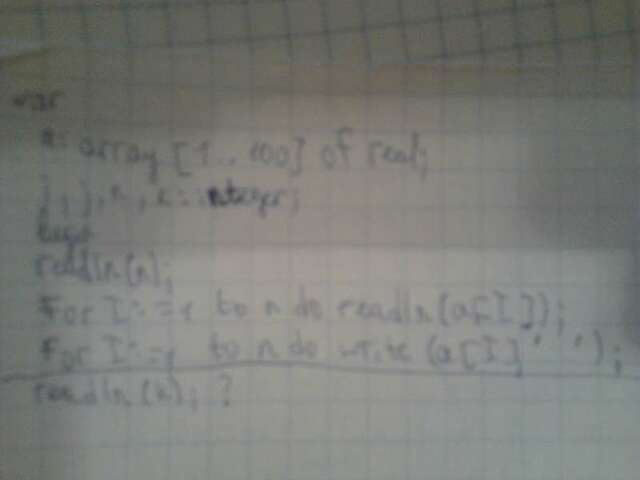 var
a: array [1..100] of real;
i, j, n, k: integer;
begin
readln(n);
For I:=1 to n do readln(a[I]);
For I:=1 to n do write (a[I]' ');
readln(n); ?